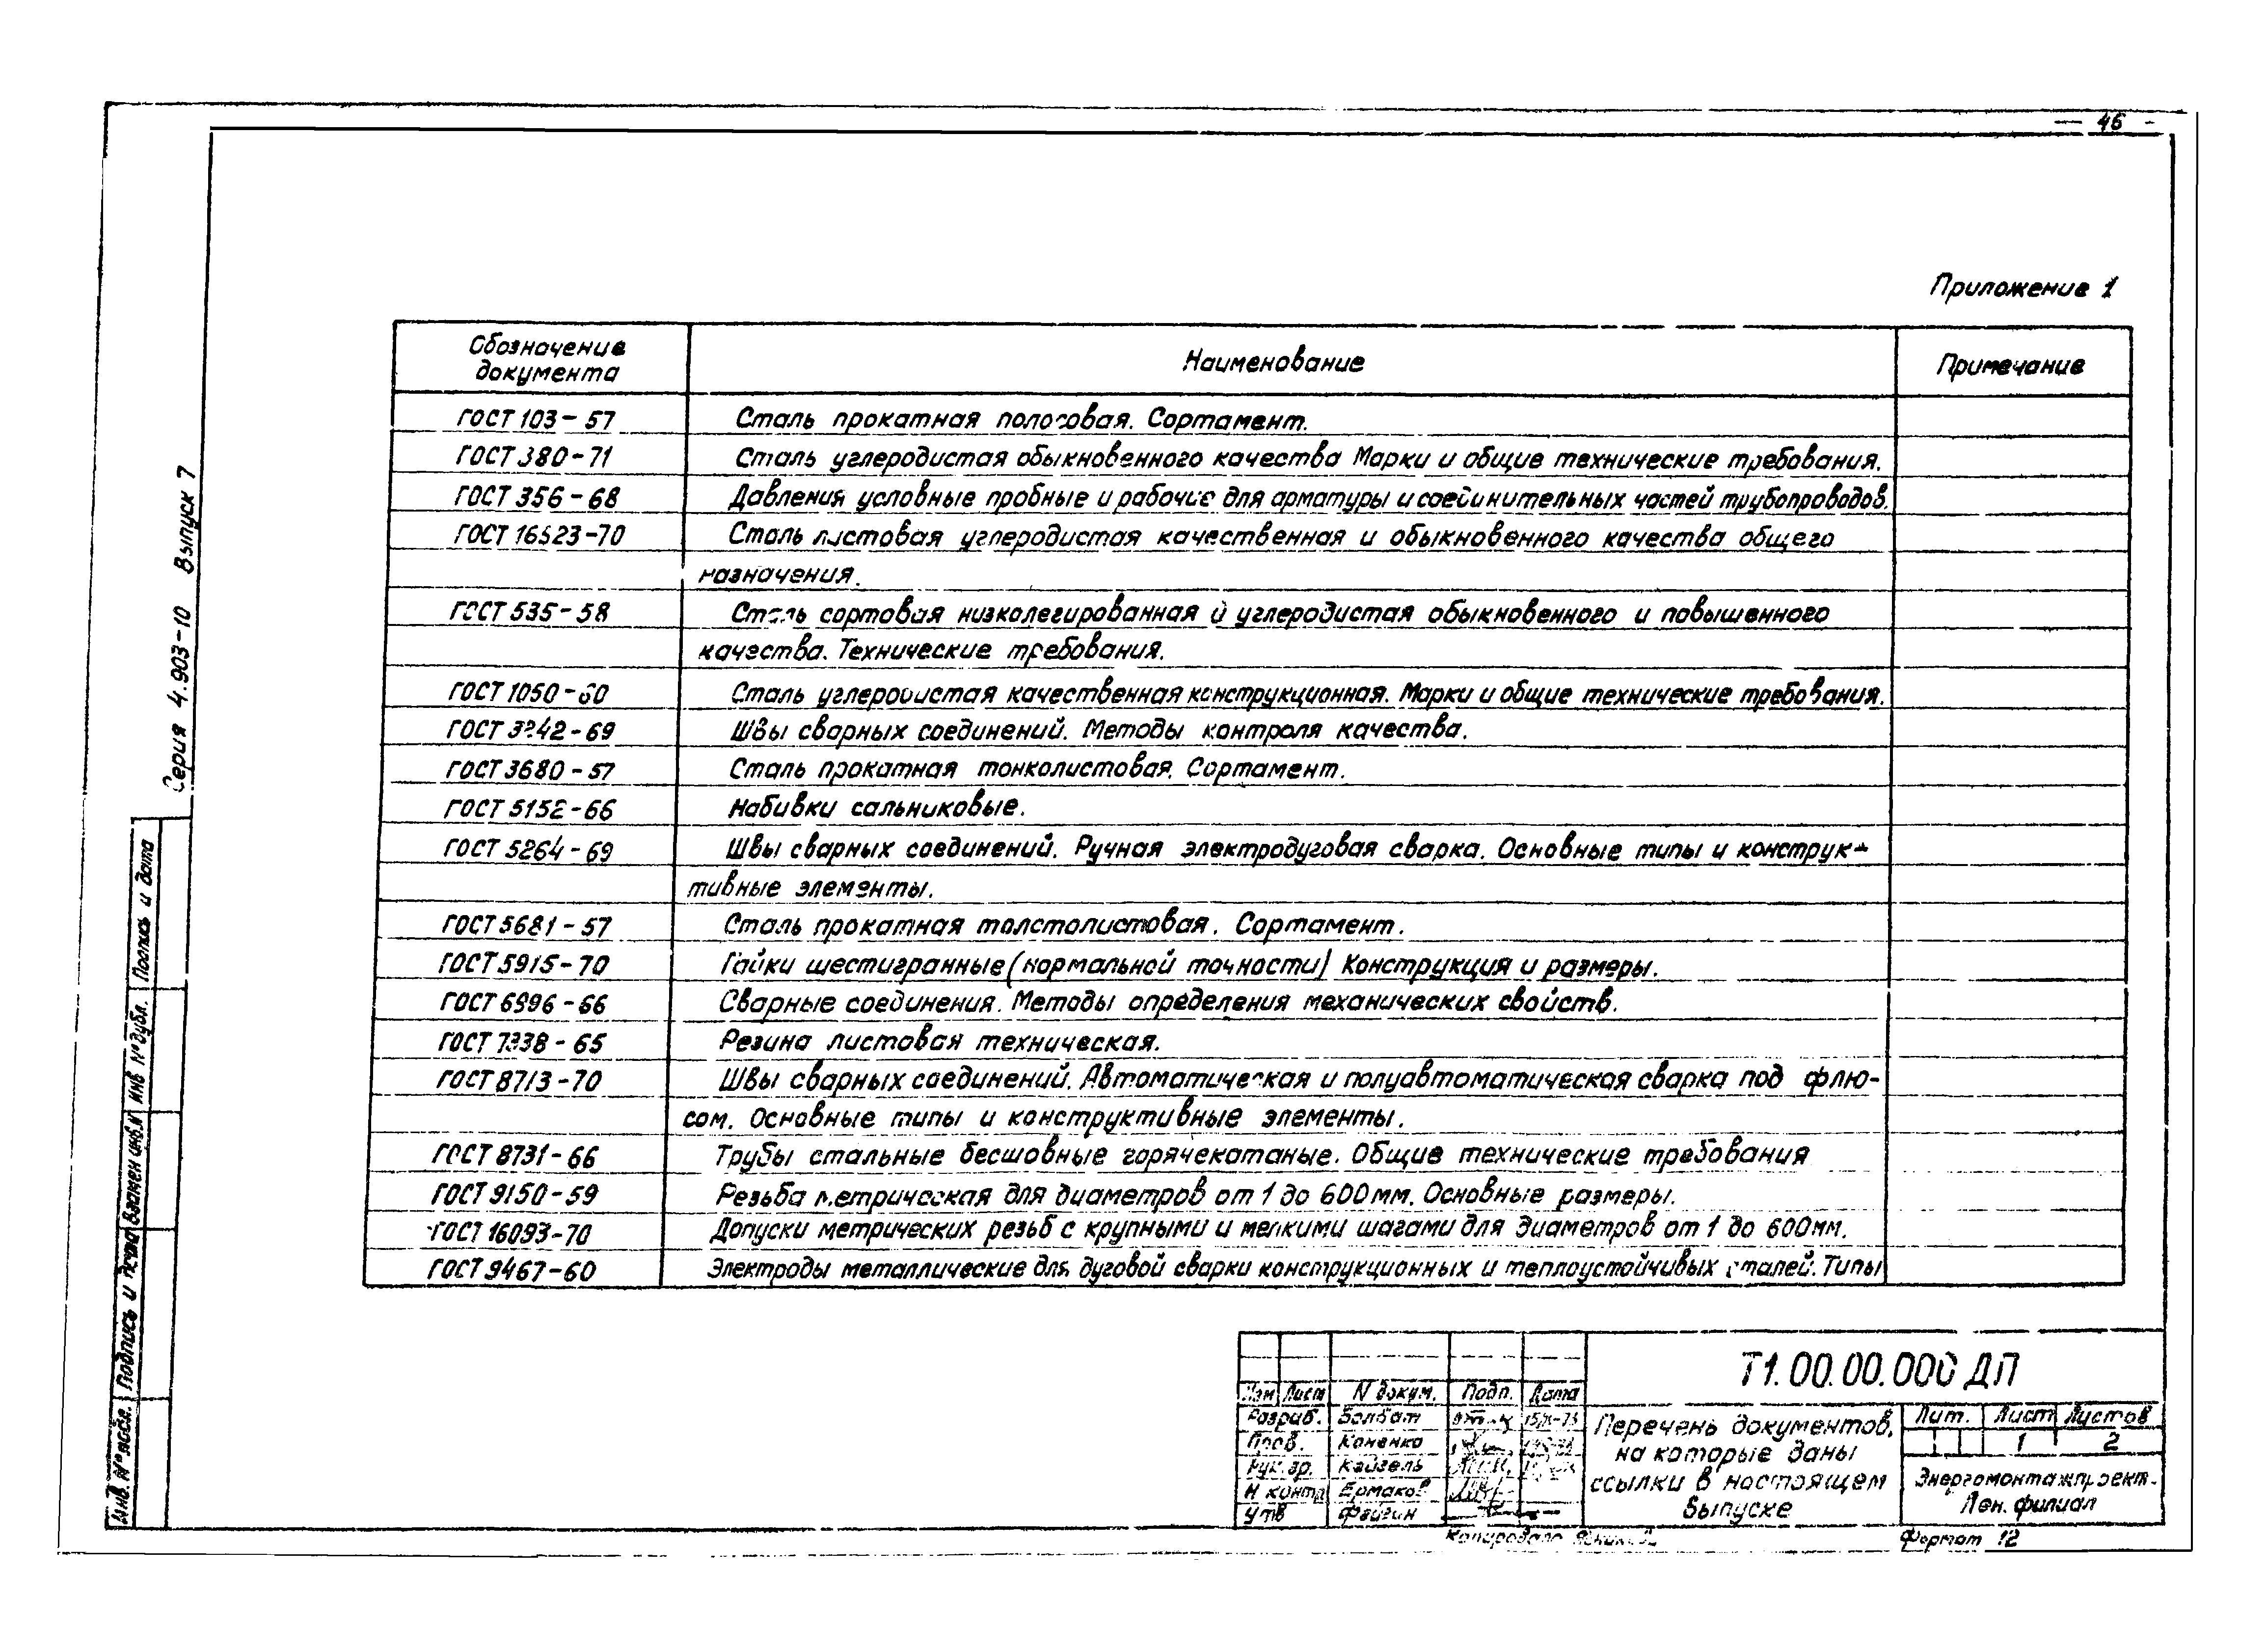 — 46 -
Приложение 1
Обозначение документа | Наименование | Примечание
ГОСТ 103-57 | Сталь прокатная полосовая. Сортамент.
ГОСТ 380-71 | Сталь углеродистая обыкновенного качества Марки и общие технические требования.
ГОСТ 356-68 | Давления условные пробные и рабочие для арматуры и соединительных частей трубопроводов.
ГОСТ 16523-70 | Сталь листовая углеродистая качественная и обыкновенного качества общего
назначения.
ГОСТ 535-58 | Сталь сортовая низколегированная и углеродистая обыкновенного и повышенного
качества. Технические требования.
ГОСТ 1050-60 | Сталь углеродистая качественная конструкционная. Марки и общие технические требования.
ГОСТ 3242-69 | Швы сварных соединений. Методы контроля качества.
ГОСТ 3680-57 | Сталь прокатная тонколистовая. Сортамент.
ГОСТ 5152-66 | Набивки сальниковые.
ГОСТ 5264-69 | Швы сварных соединений. Ручная электродуговая сварка. Основные типы и конструк-
тивные элементы.
ГОСТ 5681-57 | Сталь прокатная толстолистовая. Сортамент.
ГОСТ 5915-70 | Гайки шестигранные (нормальной точности) Конструкция и размеры.
ГОСТ 6996-66 | Сварные соединения. Методы определения механических свойств.
ГОСТ 7338-65 | Резина листовая техническая.
ГОСТ 8713-70 | Швы сварных соединений. Автоматическая и полуавтоматическая сварка под флю-
сом. Основные типы и конструктивные элементы.
ГОСТ 8731-66 | Трубы стальные бесшовные горячекатаные. Общие технические требования
ГОСТ 9150-59 | Резьба метрическая для диаметров от 1 до 600 мм. Основные размеры.
ГОСТ 16093-70 | Допуски метрических резьб с крупными и мелкими шагами для диаметров от 1 до 600 мм.
ГОСТ 9467-60 | Электроды металлические для дуговой сварки конструкционных и теплоустойчивых сталей. Типы
Серия 4.903-10 Выпуск 7
Подпись и дата
Инв № дубл.
Взамен инв. №
Подпись и дата
Инв. № подл.
Т1.00.00.000 ДП
Изм Лист N докум. Подп. Дата
Разраб. Болбат
Пров. Коненко
Рук. гр. Кайзель
Н контр Ермаков
Утв Файгин
Перечень документов,
на которые даны
ссылки в настоящем
выпуске
Лит. Лист Листов
1 2
Энергомонтажпроект.
Лен. филиал
Копировала
Формат 12